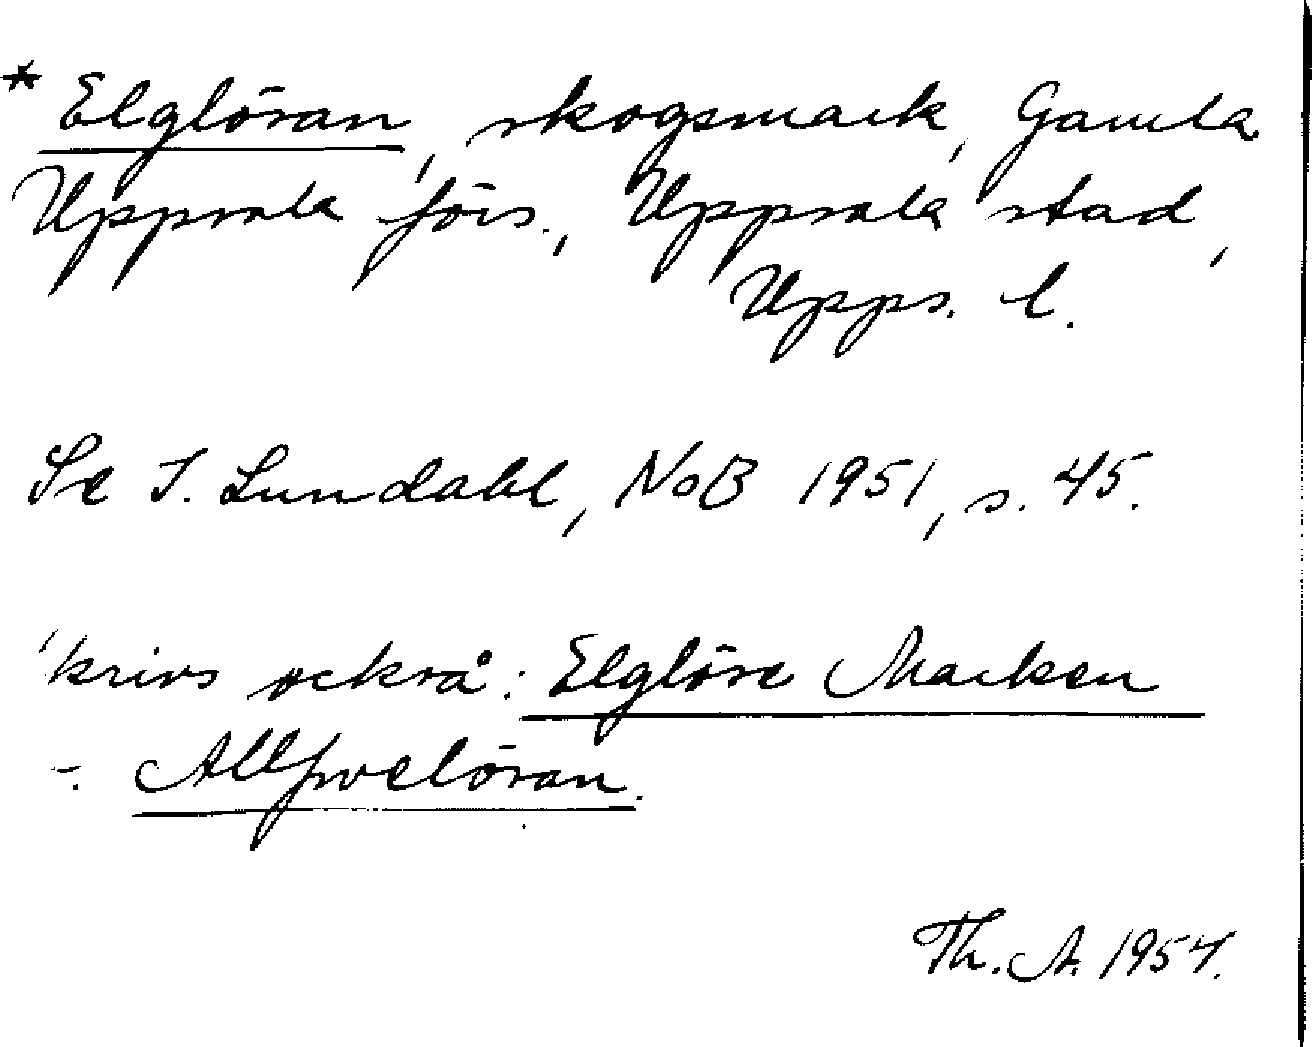 * Elglöran, skogsmark, Gamla
Uppsala förs., Uppsala stad,
Upps. l.
Se I. Lundahl, NoB 1951, s. 45.
'krivs också: Elglöre Marken
-:- Allfwelöran.
Th. A. 1954.